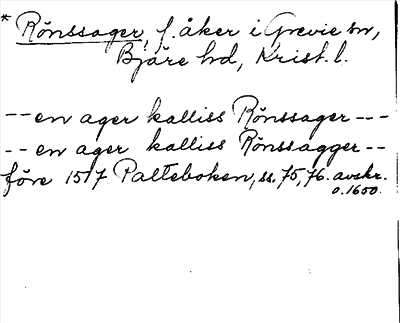 * Rönssager, f. åker i Grevie sn,
Bjäre hd, Krist. l.
-- en ager kalliss Rönssager ---
-- en ager kalliss Rönssagger --
före 1517 Palteboken, ss. 75, 76. avskr.
o. 1650.